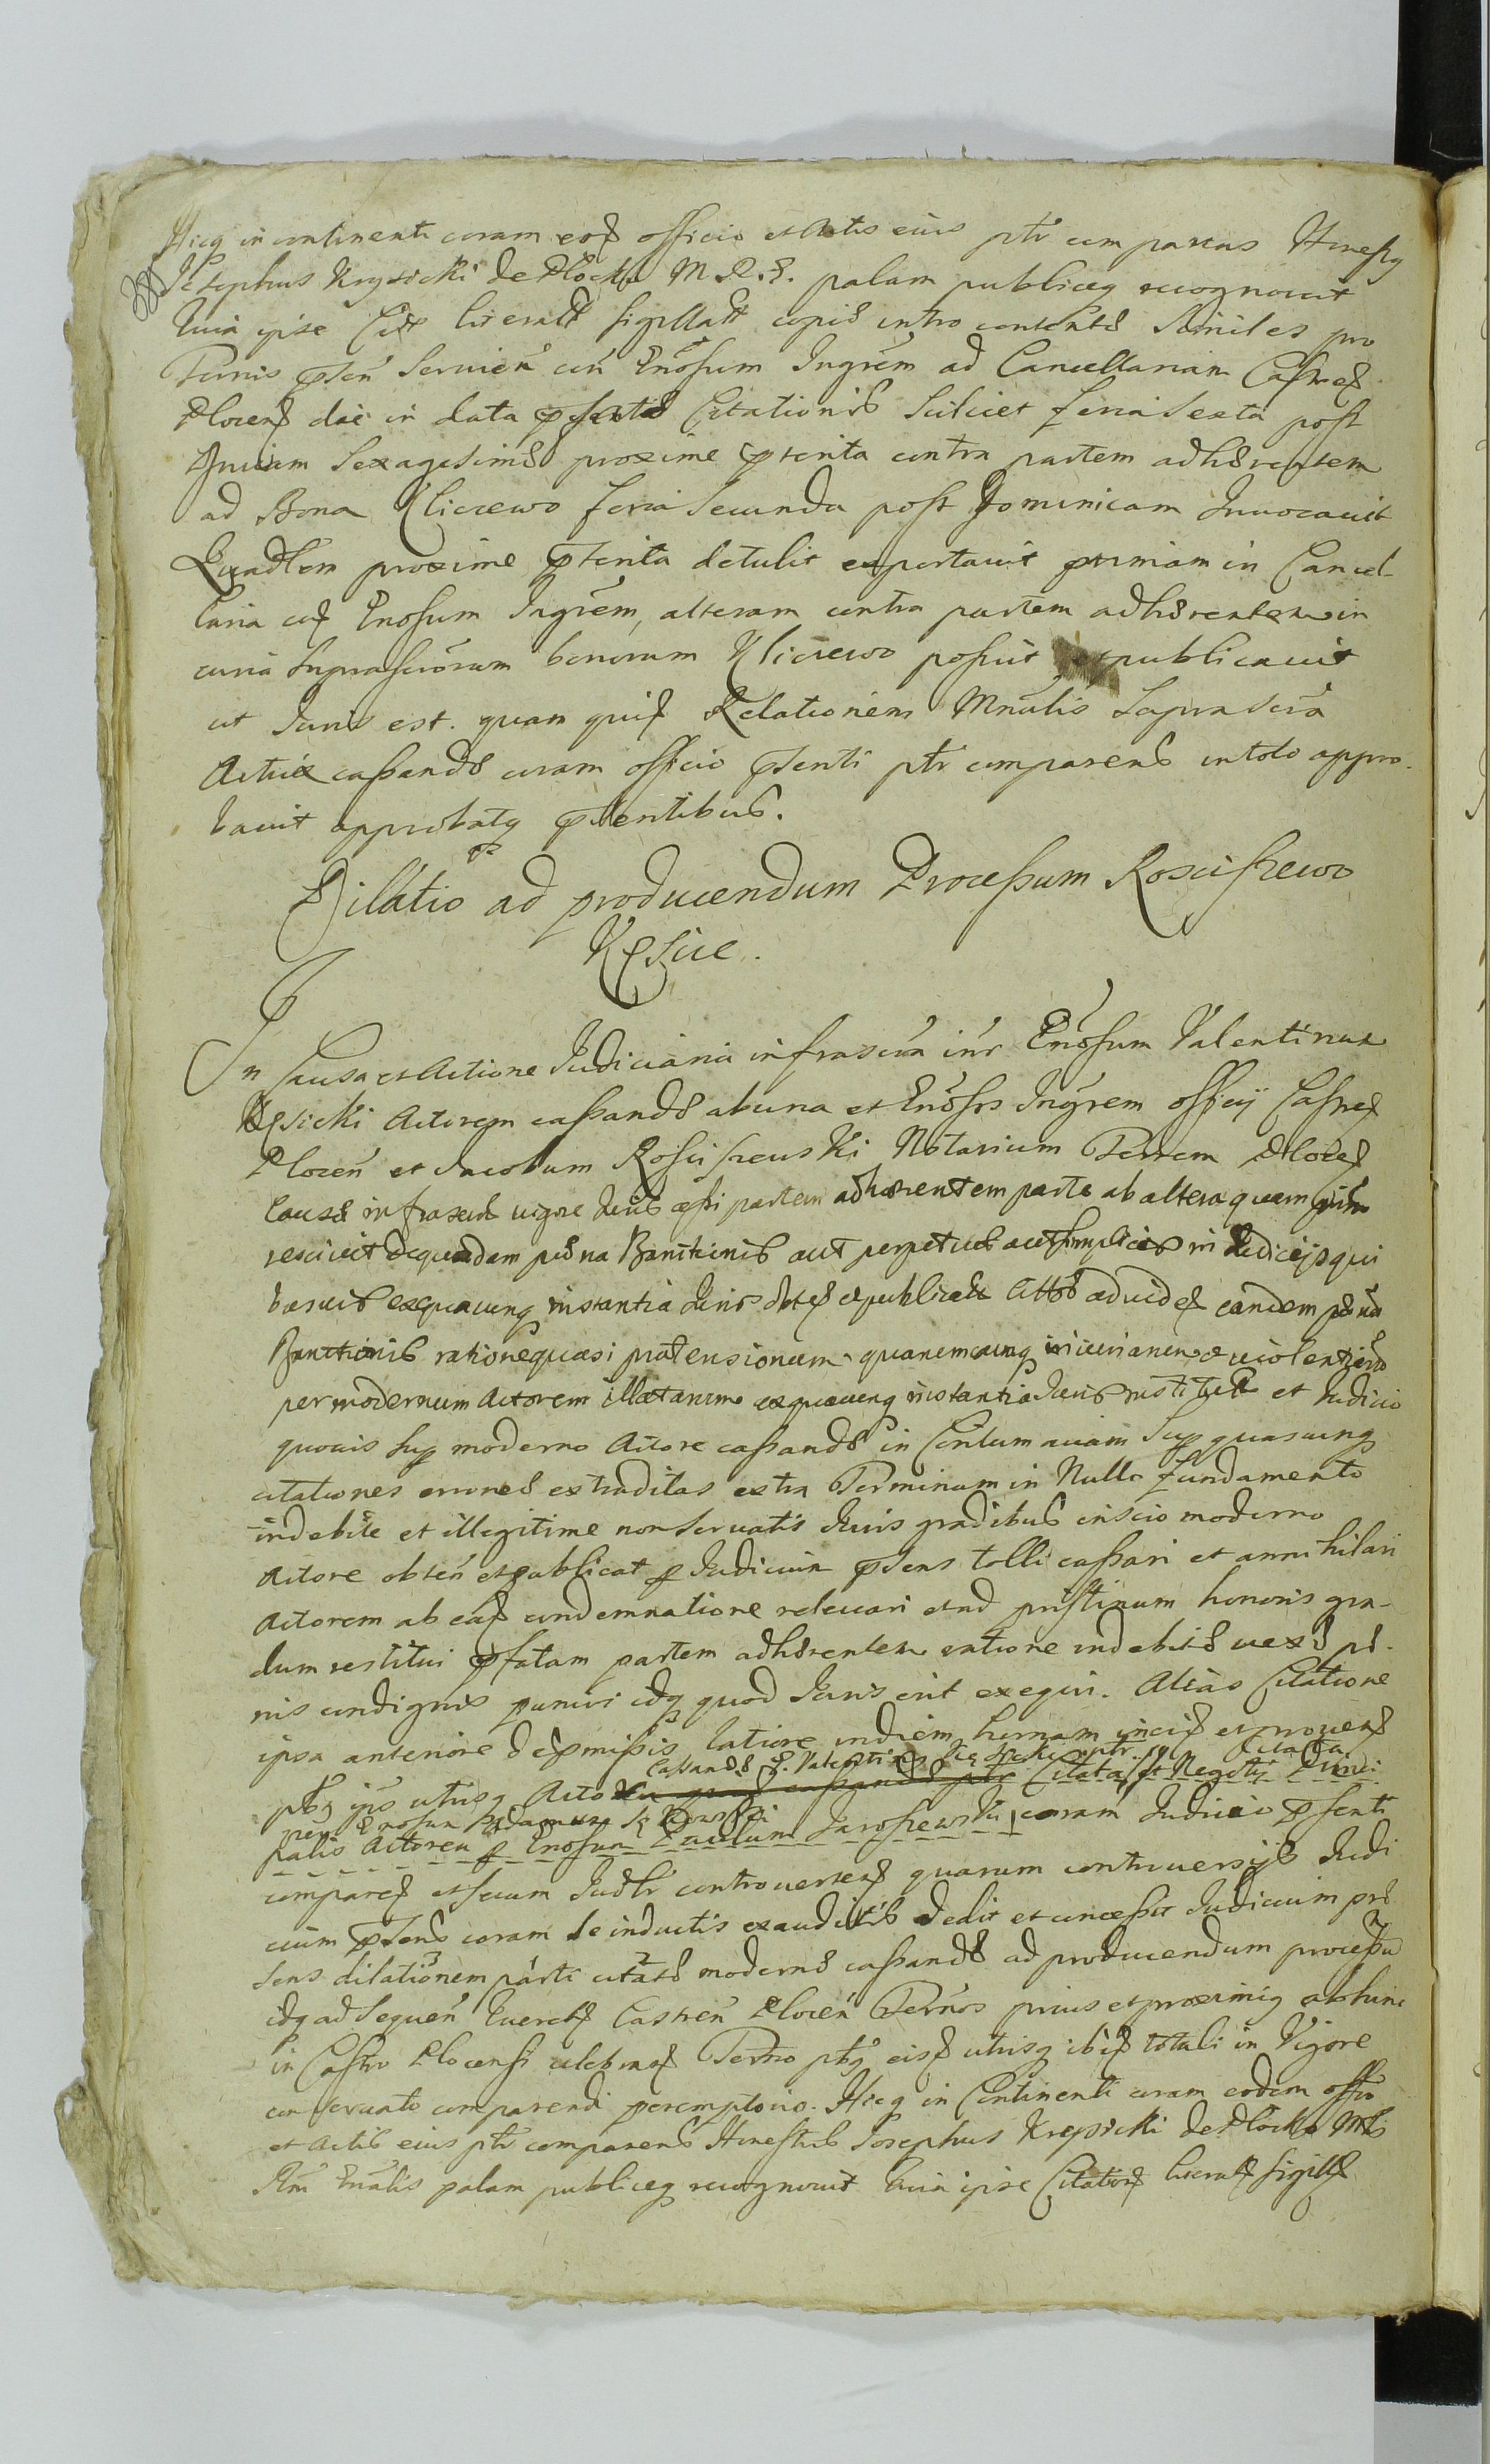 Hicq in continenti coram eod officio et Actis eius ptr comparens Honestq
Josephus Krysicki de Plocko M R. G. palam publiceq recognovit
Quia ipse Citt literatt sigillatt copiæ intro contentæ Similes pro
Termis pñten Servien con Gnosum Ingrem ad Cancellariam Castred
Plocens die in data psentis Citationis Scilicet feria sexta post
Dnicam Sexagesimæ proxime pterita contra partem adhærentem
ad Bona Kliczewo feria Secunda post Dominicam Invocavit
Quadlem proxime pterita detulit exportavit primam in Cancel-
laria cod Gnosum Ingrem, alteram contra partem adhærentem in
curia suprascriorum bonorum Kliczewo posuit et publicavit
ut Juris est. quam quid Relationem Mnalis Suprascra
Actrix cassandæ coram officio psenti ptr comparens in toto appro-
bavit approbatq psentibus.
Dilatio ad producendum Processum Rosciszewo
Kęsice.
In Causa et Actione Judiciaria infrascra inr Gnosum Valentinum
Kęsicki Actorem cassandæ ab una et Gnosos Ingrem officij Castred
Plocen et Jacobum Rosciszewski Notarium Terrem Ploced
Causæ infrascræ vigore Juris assi partem adhærentem parte ab altera quem
rescivit de quadam pæna Bannitionis aut perpetuæ aut simplicis in Judicijs qui
busvis ex quacunq instantia Juris obted et publicatt Attæ ad vided eandem pæna
Bannitionis ratione quasi prætensionum quarumcunq iniuriarum et violentiarum
per modernum Actorem illatarum ex quacunq instantia Juris instituta et Judicio
quovis sup moderno Actore cassandæ in Contumaciam Sup quascunq
citationes erroneæ extraditas extra Terminum in Nullo fundamento
indebite et illegitime non servatis Juris gradibus inscio moderno
Actore obten et publicat p Judicium psens tolli cassari et annihilari
Actorem ab ead condemnatione relevari et ad pristinum honoris gra-
dum restitui pfatam partem adhærentem ratione indebitæ vexæ pæ-
nis condignis puniri idq quod Juris erit exequi. Alias Citatione
ipsa anteriore de pmissis latiore in diem hernam incid et proved
Cassandæ G. Valentinus Kęsicki ptr Citata
ptbq ipis utrisq Actorea Citata et Negotij Princi
per Gnosum Adamum
palis Actorea p Gnosum Paulum Jaroszewski coram Judicio psenti
compared et secum Judlr controversed quarum controversijs Judi
cium psens coram se inductis exauditis dedit et concessit Judicium præ
sens dilationem parti citatæ modernæ cassandæ ad producendum processu
idq ad sequen Querelq Castren Plocen Termos prius et proximiq abhinc
in Castro Plocensi celebrand Termo ptbq eisd utrisq ibid totali in Vigore
conservato comparendi peremptorio. Hicq in Continenti coram eodem offio
et Actis eius ptr comparens Honestus Josephus Krepsicki de Plocko Mtis
Rni Gnalis palam publiceq recognovit Quia ipse Citationd literatq sigillq